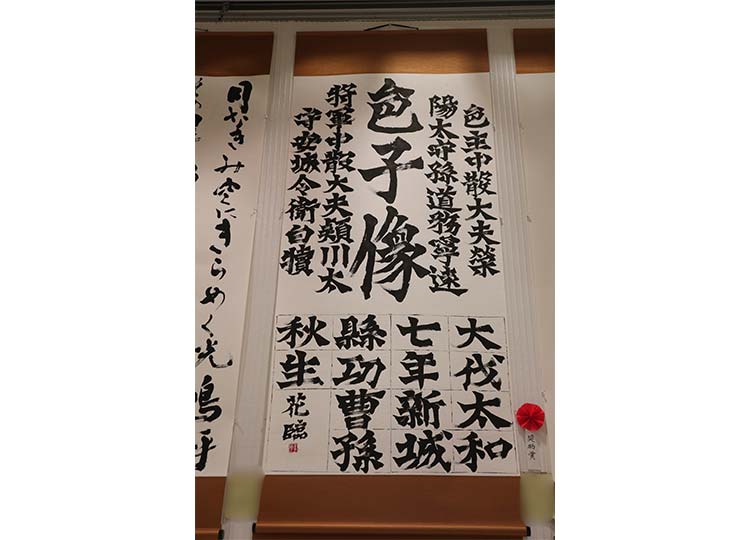 邑主中散大夫榮
陽太守孫道務寧遠
邑子像
將軍中散大夫潁川太
守安城令衛白犢
大伐太和
七年新城
縣功曹孫
秋生
花臨
月なきみ空にきらめく光嗚呼